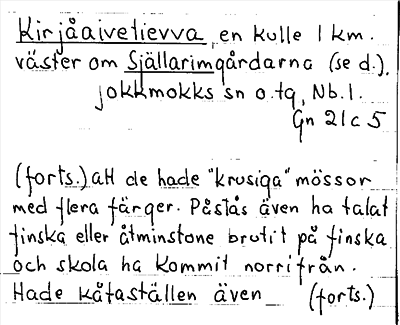 Kirjåaivetievva, en kulle 1 km.
väster om Själlarimgårdarna (se d.),
jokkmokks sn o. tg, Nb. l.
Gn 21c5
(forts.) att de hade "krusiga" mössor
med flera färger. Påstås även ha talat
finska eller åtminstone brutit på finska
och skola ha kommit norrifrån.
Hade kåtaställen även (forts.)